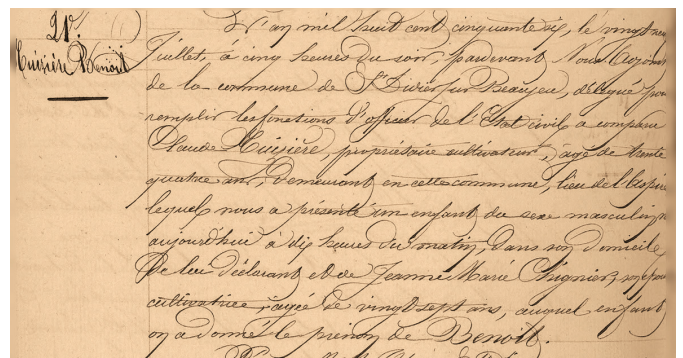 21.
Cuisière Benoit
L'an mil huit cent cinquante six, le vingt neuf
Juillet, à cinq heures du soir, pardevant Nous adjoint
de la commune de St Didier sur Beaujeu, délégué pour
remplir les fonctions d'officier de l'Etat civil a comparu
Claude Cuisière, propriétaire cultivateur, âgé de trente
quatre ans, demeurant en cette commune, lieu de
lequel nous a présenté un enfant du sexe masculin
aujourd'hui à dix heures du matin, dans son domicile
De lui déclarant et de Jeanne Marie Chignier, son
cultivatrice, âgée de vingt sept ans, auquel enfant
on a donné le prénom de Benoit.